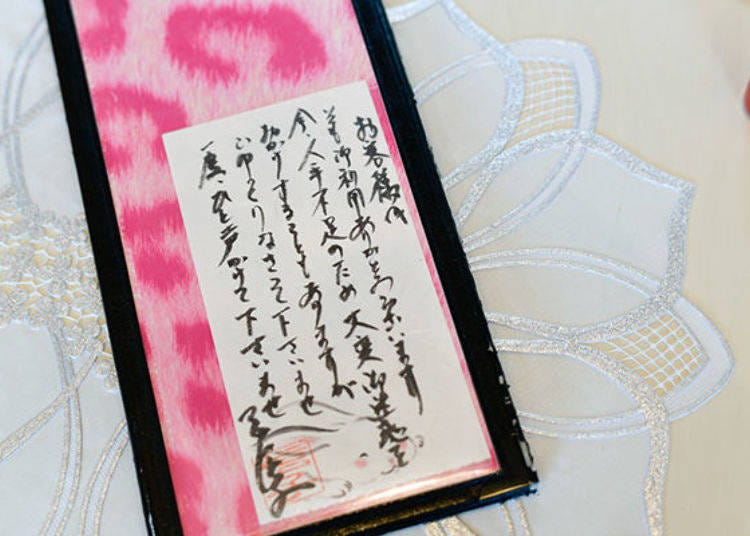 お客様へ
いつも御利用ありがとうございます
今、人手不足のため大変御迷惑を
おかけすることもありますが
ごゆっくりなさって下さいませ
一度、ひと声かけて下さいませ